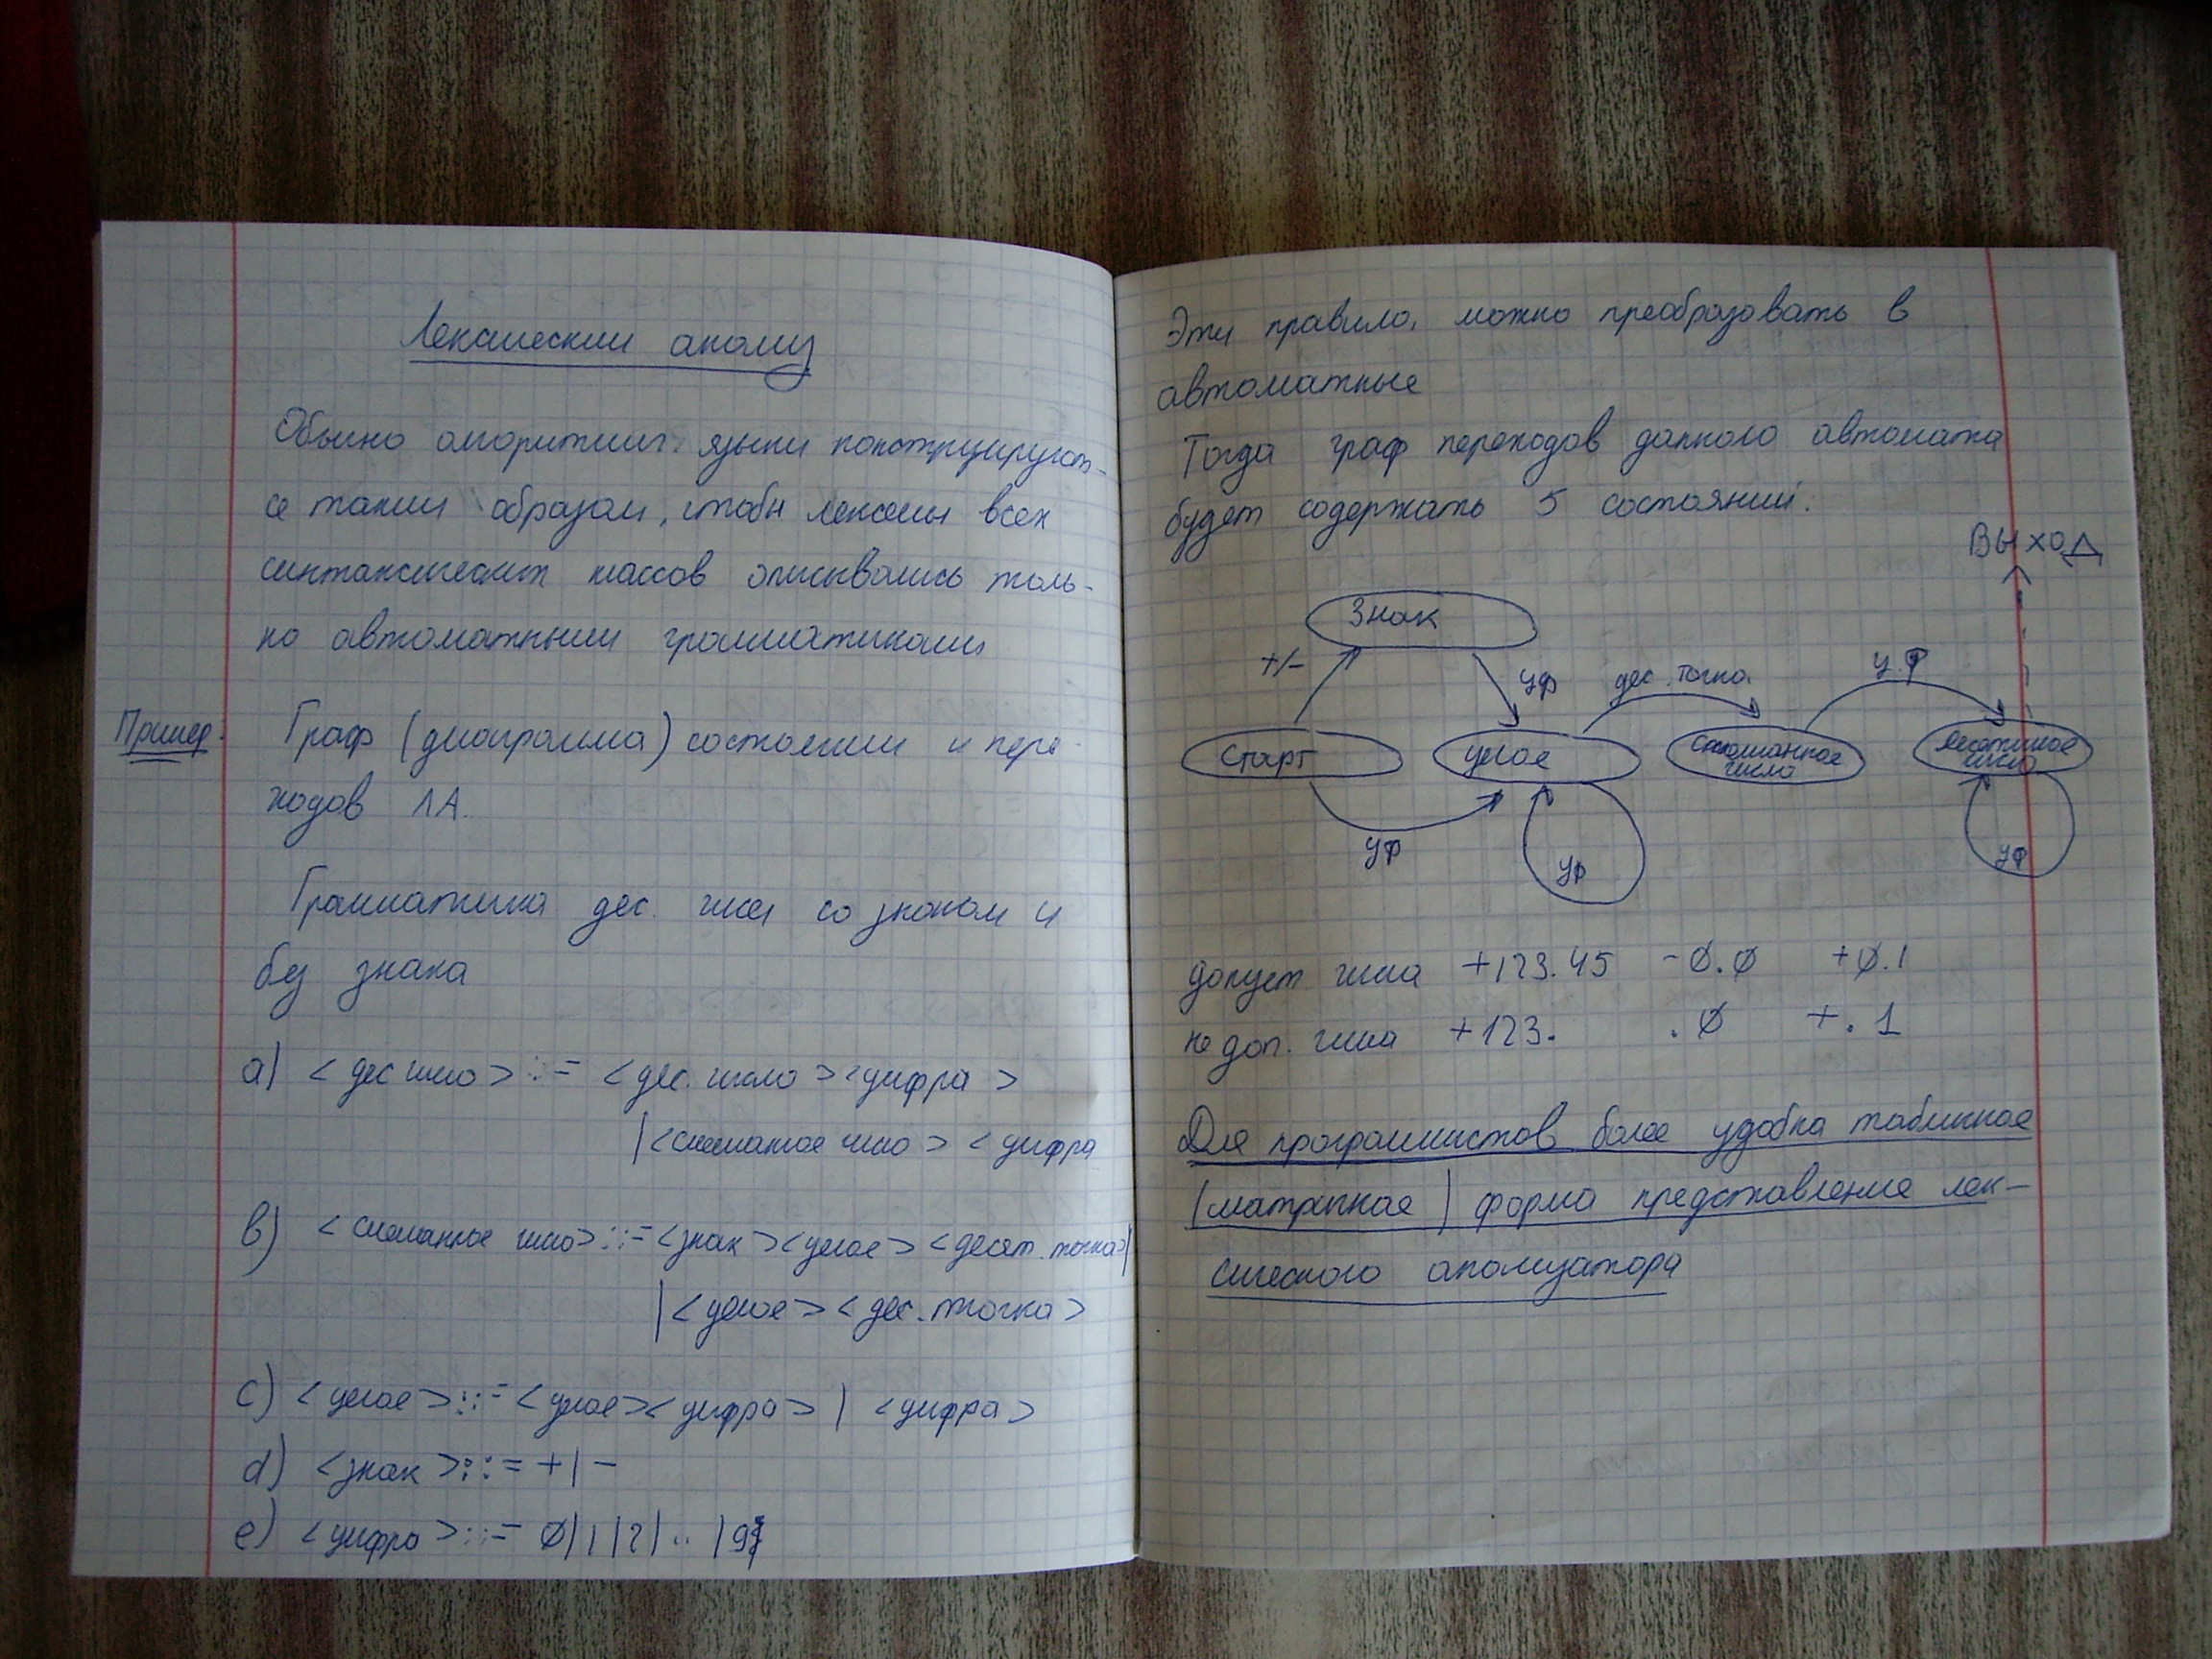 Лексический анализ
Обычно алгоритмич. языки конструируют-
ся таким образом, чтобы лексемы всех
синтаксических классов описывались толь-
ко автоматными грамматиками
Пример: Граф (диаграмма) состояний и пере-
ходов ЛА.
Грамматика дес. чисел со знаком и
без знака
a) <дес число> ::= <дес. число><цифра>
|<смешаное число> <цифра
b) <смешанное число>::=<знак><целое><десят. точка>|
|<целое><дес. точка>
c) <целое>::=<целое><цифра> | <цифра>
d) <знак>::= +| -
e) <цифра>::= 0|1|2| .. |9
Эти правила, можно преобразовать в
автоматные
Тогда граф переходов данного автомата
будет содержать 5 состояний:
ВЫХОД
Знак
+/-
цф
дес. точка
ц.ф
Старт
целое
смешанное
число
десятичное
число
цф
цф
цф
допуст числа +123.45 -0.0 +0.1
не доп. числа +123. .0 +.1
Для программистов более удобна табличная
(матричная) форма представление лек-
сического анализатора